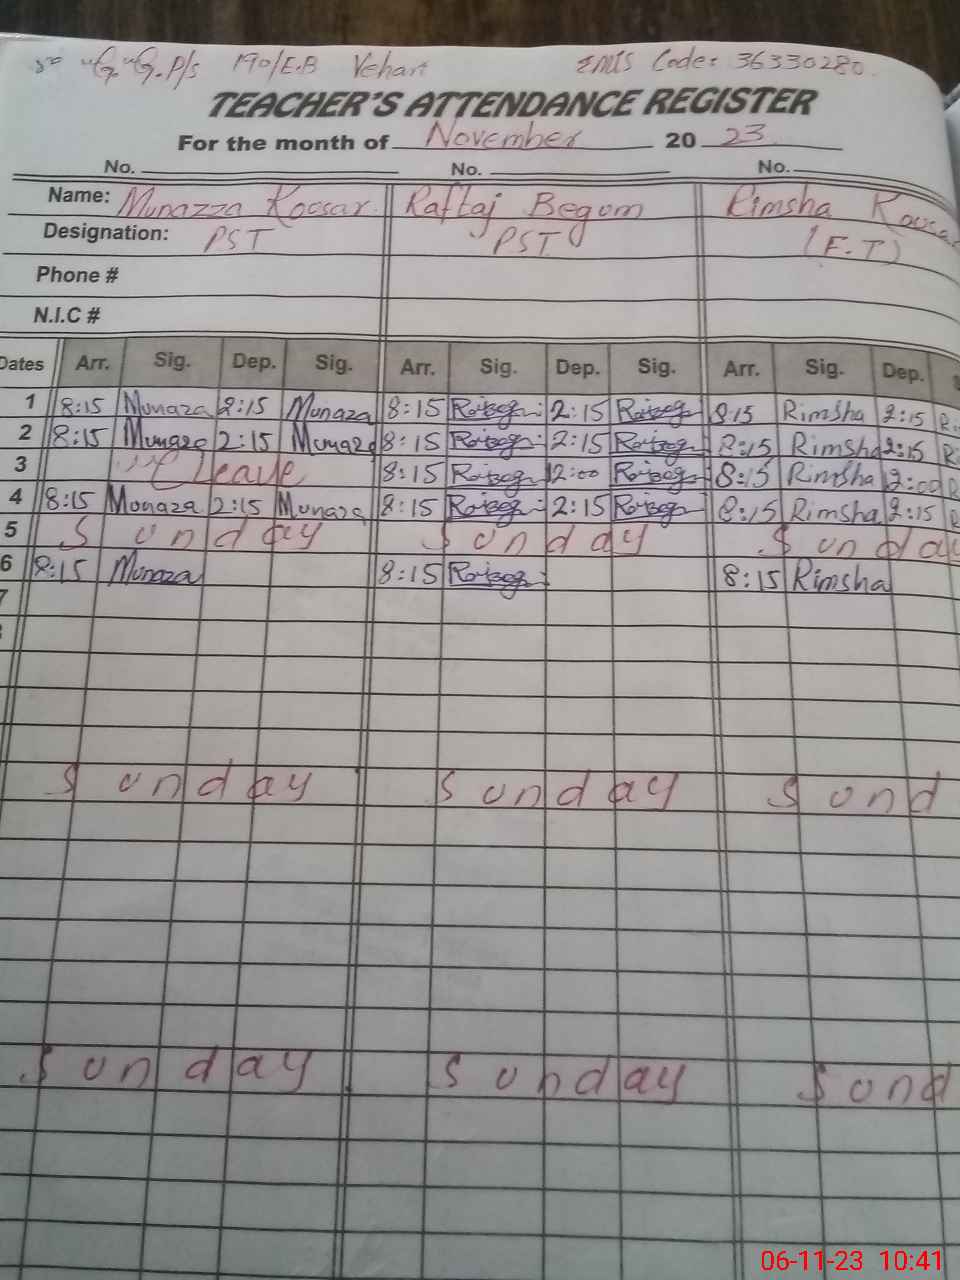 G.G.P/S 190/E.B Vehari EMIS Code: 36330280
TEACHER'S ATTENDANCE REGISTER
For the month of November 20 23
No. No. No.
Name: Munazza Koosar Raftaj Begom Rimsha Koosar
Designation: PST PST (F.T)
Phone #
N.I.C #
Dates Arr. Sig. Dep. Sig. Arr. Sig. Dep. Sig. Arr. Sig. Dep.
1 8:15 Munaza 2:15 Munaza 8:15 2:15 8:15 Rimsha 2:15
2 8:15 Munaza 2:15 Munaza 8:15 2:15 8:15 Rimsha 2:15
3 Leave 8:15 12:00 8:15 Rimsha 12:00
4 8:15 Munaza 2:15 Munaza 8:15 2:15 8:15 Rimsha 2:15
5 Sunday Sunday Sunday
6 8:15 Munaza 8:15 8:15 Rimsha
7
Sunday Sunday Sund
Sunday Sunday Sund
06-11-23 10:41